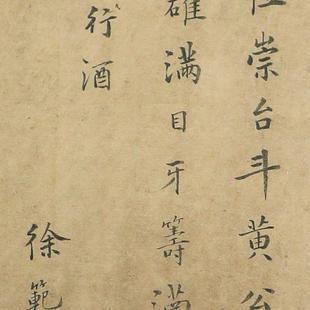 崇台斗黄公
確满目牙籌满
行酒
徐範